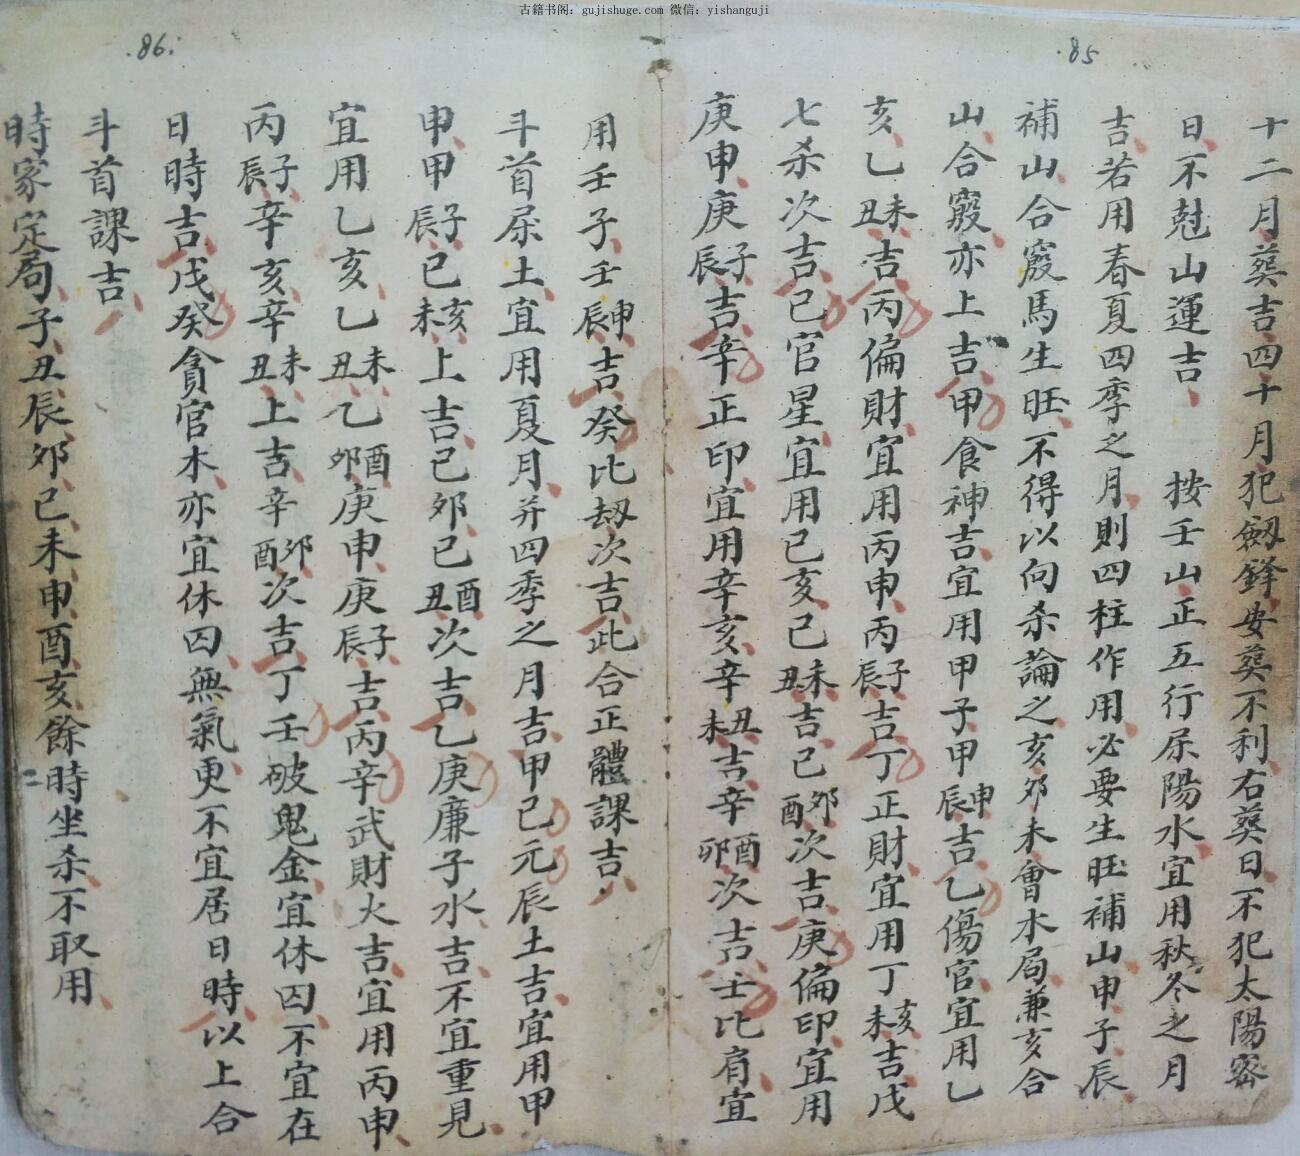 古籍书阁：gujishuge.com 微信：yishanguji
.85
十二月葵吉四十月犯劔鋒安葵不利右葵日不犯太陽密
日不尅山運吉 按壬山正五行屎陽水宜用秋冬之月
吉若用春夏四季之月則四柱作用必要生旺補山申子辰
補山合竅馬生旺不得以向杀論之亥夘未會木局兼亥合
山合竅亦上吉甲食神吉宜用甲子甲申辰吉乙傷官宜用乙
亥乙未丑吉丙偏財宜用丙申丙子辰吉丁正財宜用丁亥未吉戊
七杀次吉己官星宜用己亥己未丑吉己夘酉次吉庚偏印宜用
庚申庚子辰吉辛正印宜用辛亥辛丑未吉辛酉卯次吉壬比肩宜
用壬子壬申辰吉癸比刼次吉此合正體課吉
.86.
斗首屎土宜用夏月并四季之月吉甲己元辰土吉宜用甲
申甲子辰己亥未上吉己夘己酉丑次吉乙庚廉子水吉不宜重見
宜用乙亥乙未丑乙酉夘庚申庚子辰吉丙辛武財火吉宜用丙申
丙子辰辛亥辛未丑上吉辛夘酉次吉丁壬破鬼金宜休囚不宜在
日時吉戊癸貪官木亦宜休囚無氣更不宜居日時以上合
斗首課吉
時家定局子丑辰夘巳未申酉亥餘時坐杀不取用